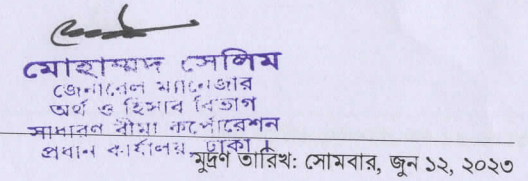 মোহাম্মদ সেলিম
জেনারেল ম্যানেজার
অর্থ ও হিসাব বিভাগ
সাধারণ বীমা কর্পোরেশন
প্রধান কার্যালয়, ঢাকা ।
মুদ্রণ তারিখ: সোমবার, জুন ১২, ২০২৩